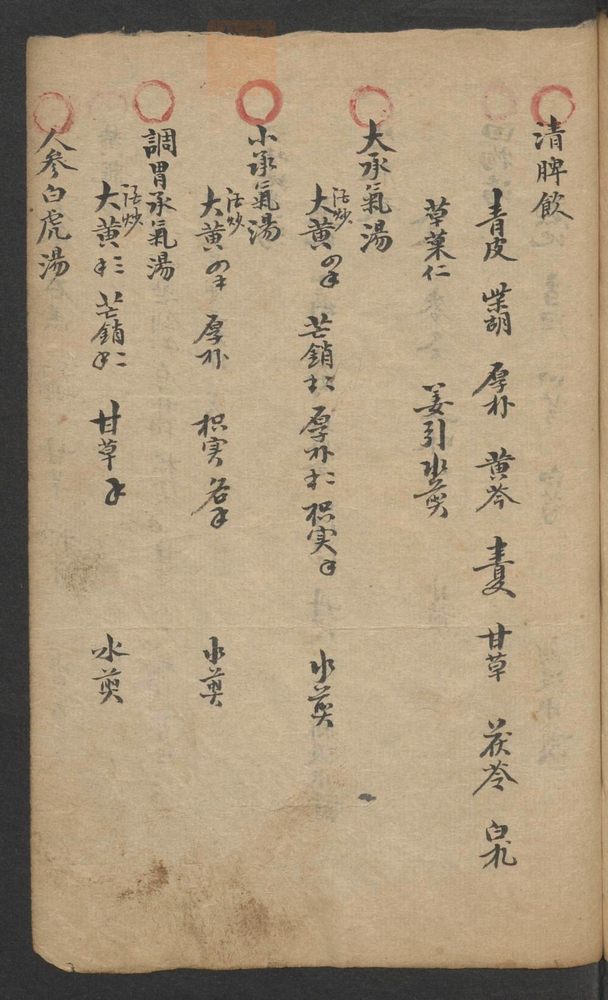 清脾飲
青皮 柴胡 厚朴 黄芩 夏 甘草 茯苓 白朮
草菓仁 姜引 水煎
大承氣湯
大黄 酒炒 芒銷 厚朴 枳実 水煎
小承氣湯
大黄 酒炒 厚朴 枳実 各 水煎
調胃承氣湯
大黄 酒炒 芒銷 甘草 水煎
人参白虎湯